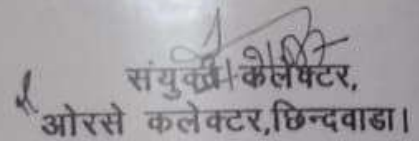 संयुक्त कलेक्टर,
ओरसे कलेक्टर,छिन्दवाडा।